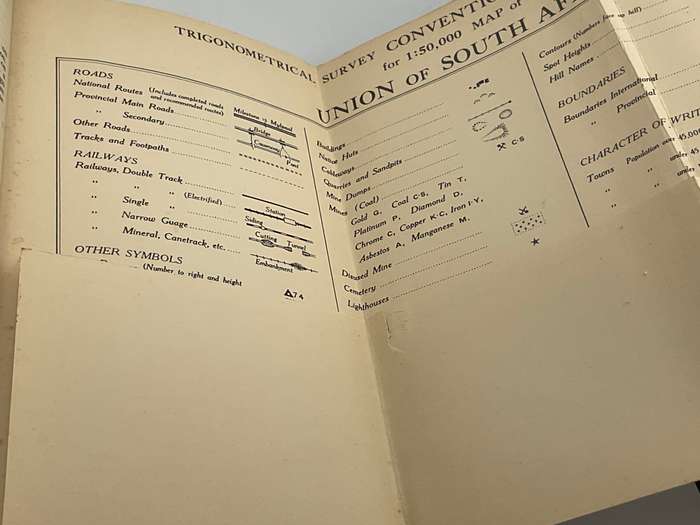 TRIGONOMETRICAL SURVEY CONVENTIO
for 1:50,000 MAP of
UNION OF SOUTH AF
ROADS
National Routes (Includes completed roads
and recommended routes)
Provincial Main Roads
" Secondary
Other Roads
Tracks and Footpaths
Bridge
Causeway
RAILWAYS
Railways, Double Track
" " (Electrified)
" Single "
" Narrow Guage
" Mineral, Canetrack, etc.
Station
Siding
Cutting Tunnel
Embankment
OTHER SYMBOLS
(Number to right and height
74
Buildings
Native Huts
Quarries and Sandpits
Mine Dumps
Mines (Coal)
Gold G, Coal C·S, Tin T,
Platinum P, Diamond D,
Chrome C, Copper K·C, Iron I·Y,
Asbestos A, Manganese M,
C·S
Disused Mine
Cemetery
Lighthouses
Contours (Numbers face up hill)
Spot Heights
Hill Names
BOUNDARIES
Boundaries International
" Provincial
CHARACTER OF WRIT
Towns Population over 45,000
" " under 45
" " under